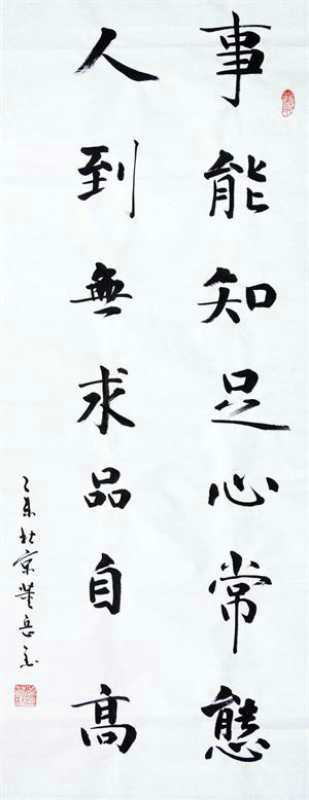 事能知足心常態
人到無求品自高
乙未北京